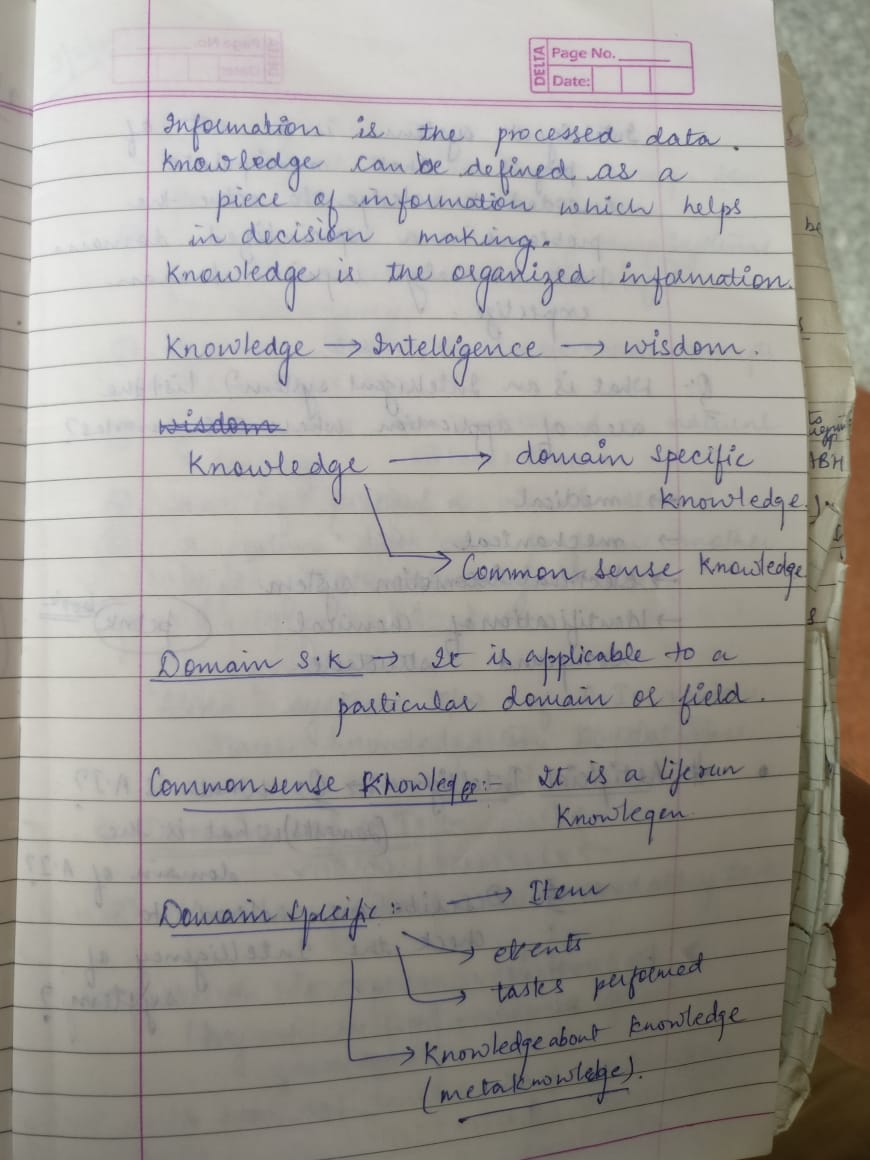 DELTA
Page No.
Date:
Information is the processed data.
Knowledge can be defined as a
piece of information which helps
in decision making.
Knowledge is the organized information.
Knowledge → Intelligence → wisdom.
wisdom
Knowledge → domain specific
Knowledge.
→ Common sense Knowledge
Domain S.K → It is applicable to a
particular domain or field.
Common sense Knowledge:- It is a liferun
Knowlegen
Domain specific:- → Item
→ events
→ tasks performed
→ Knowledge about knowledge
(metaknowledge).